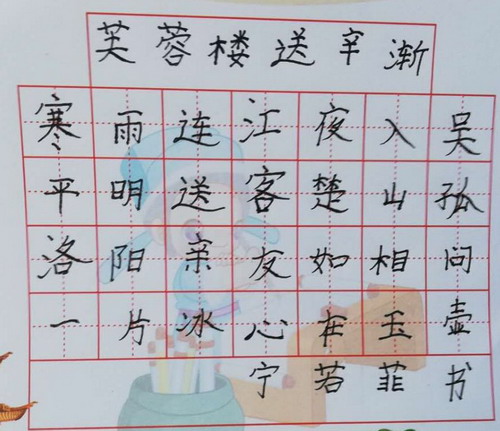 芙蓉楼送辛渐
寒雨连江夜入吴
平明送客楚山孤
洛阳亲友如相问
一片冰心在玉壶
宁若菲书